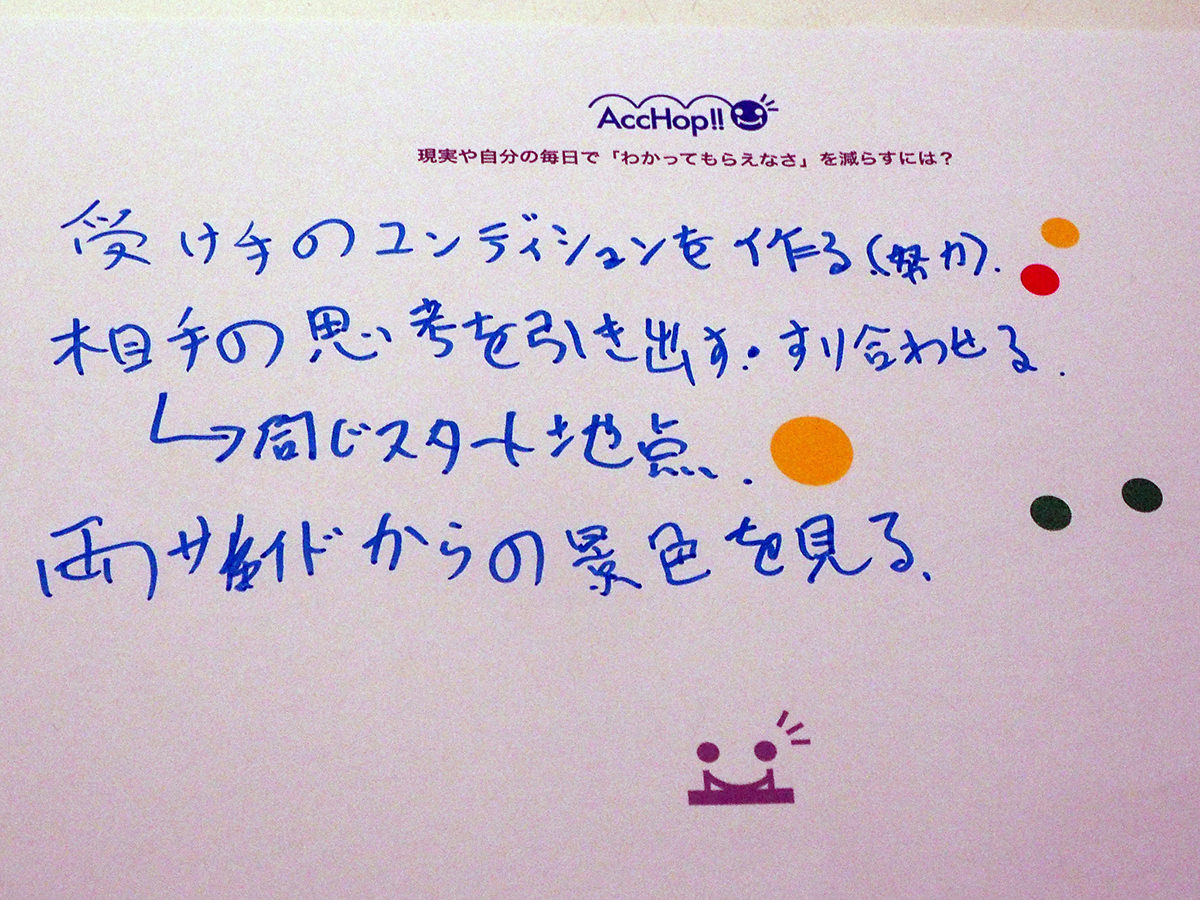 AccHop!!
現実や自分の毎日で「わかってもらえなさ」を減らすには？
受け手のコンディションを作る(努力).
相手の思考を引き出す・すり合わせる.
↳同じスタート地点.
両サイドからの景色を見る.